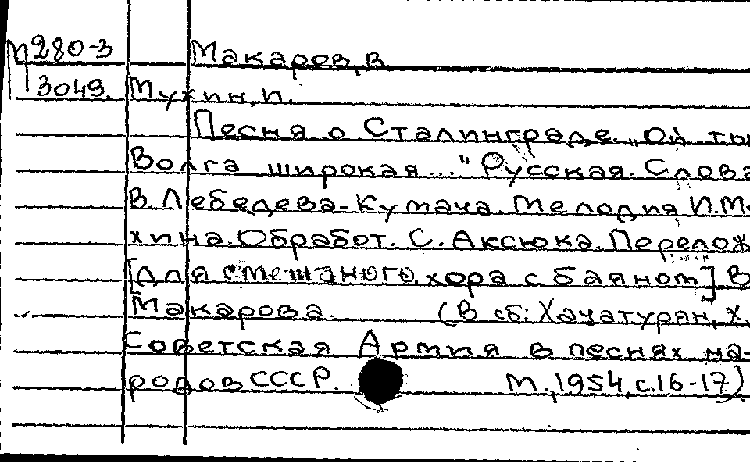 М280-3 Макаров, В
3049. Мухин, И.
Песня о Сталинграде. „Ой ты
Волга широкая..." Русская. Слова
В. Лебедева-Кумача. Мелодия И. Му-
хина. Обработ. С. Аксюка. Перелож
[для смешаного хора с баяном] В
Макарова (В сб: Хачатурян, Х.
Советская Армия в песнях на-
родов СССР. М., 1954, с. 16-17)